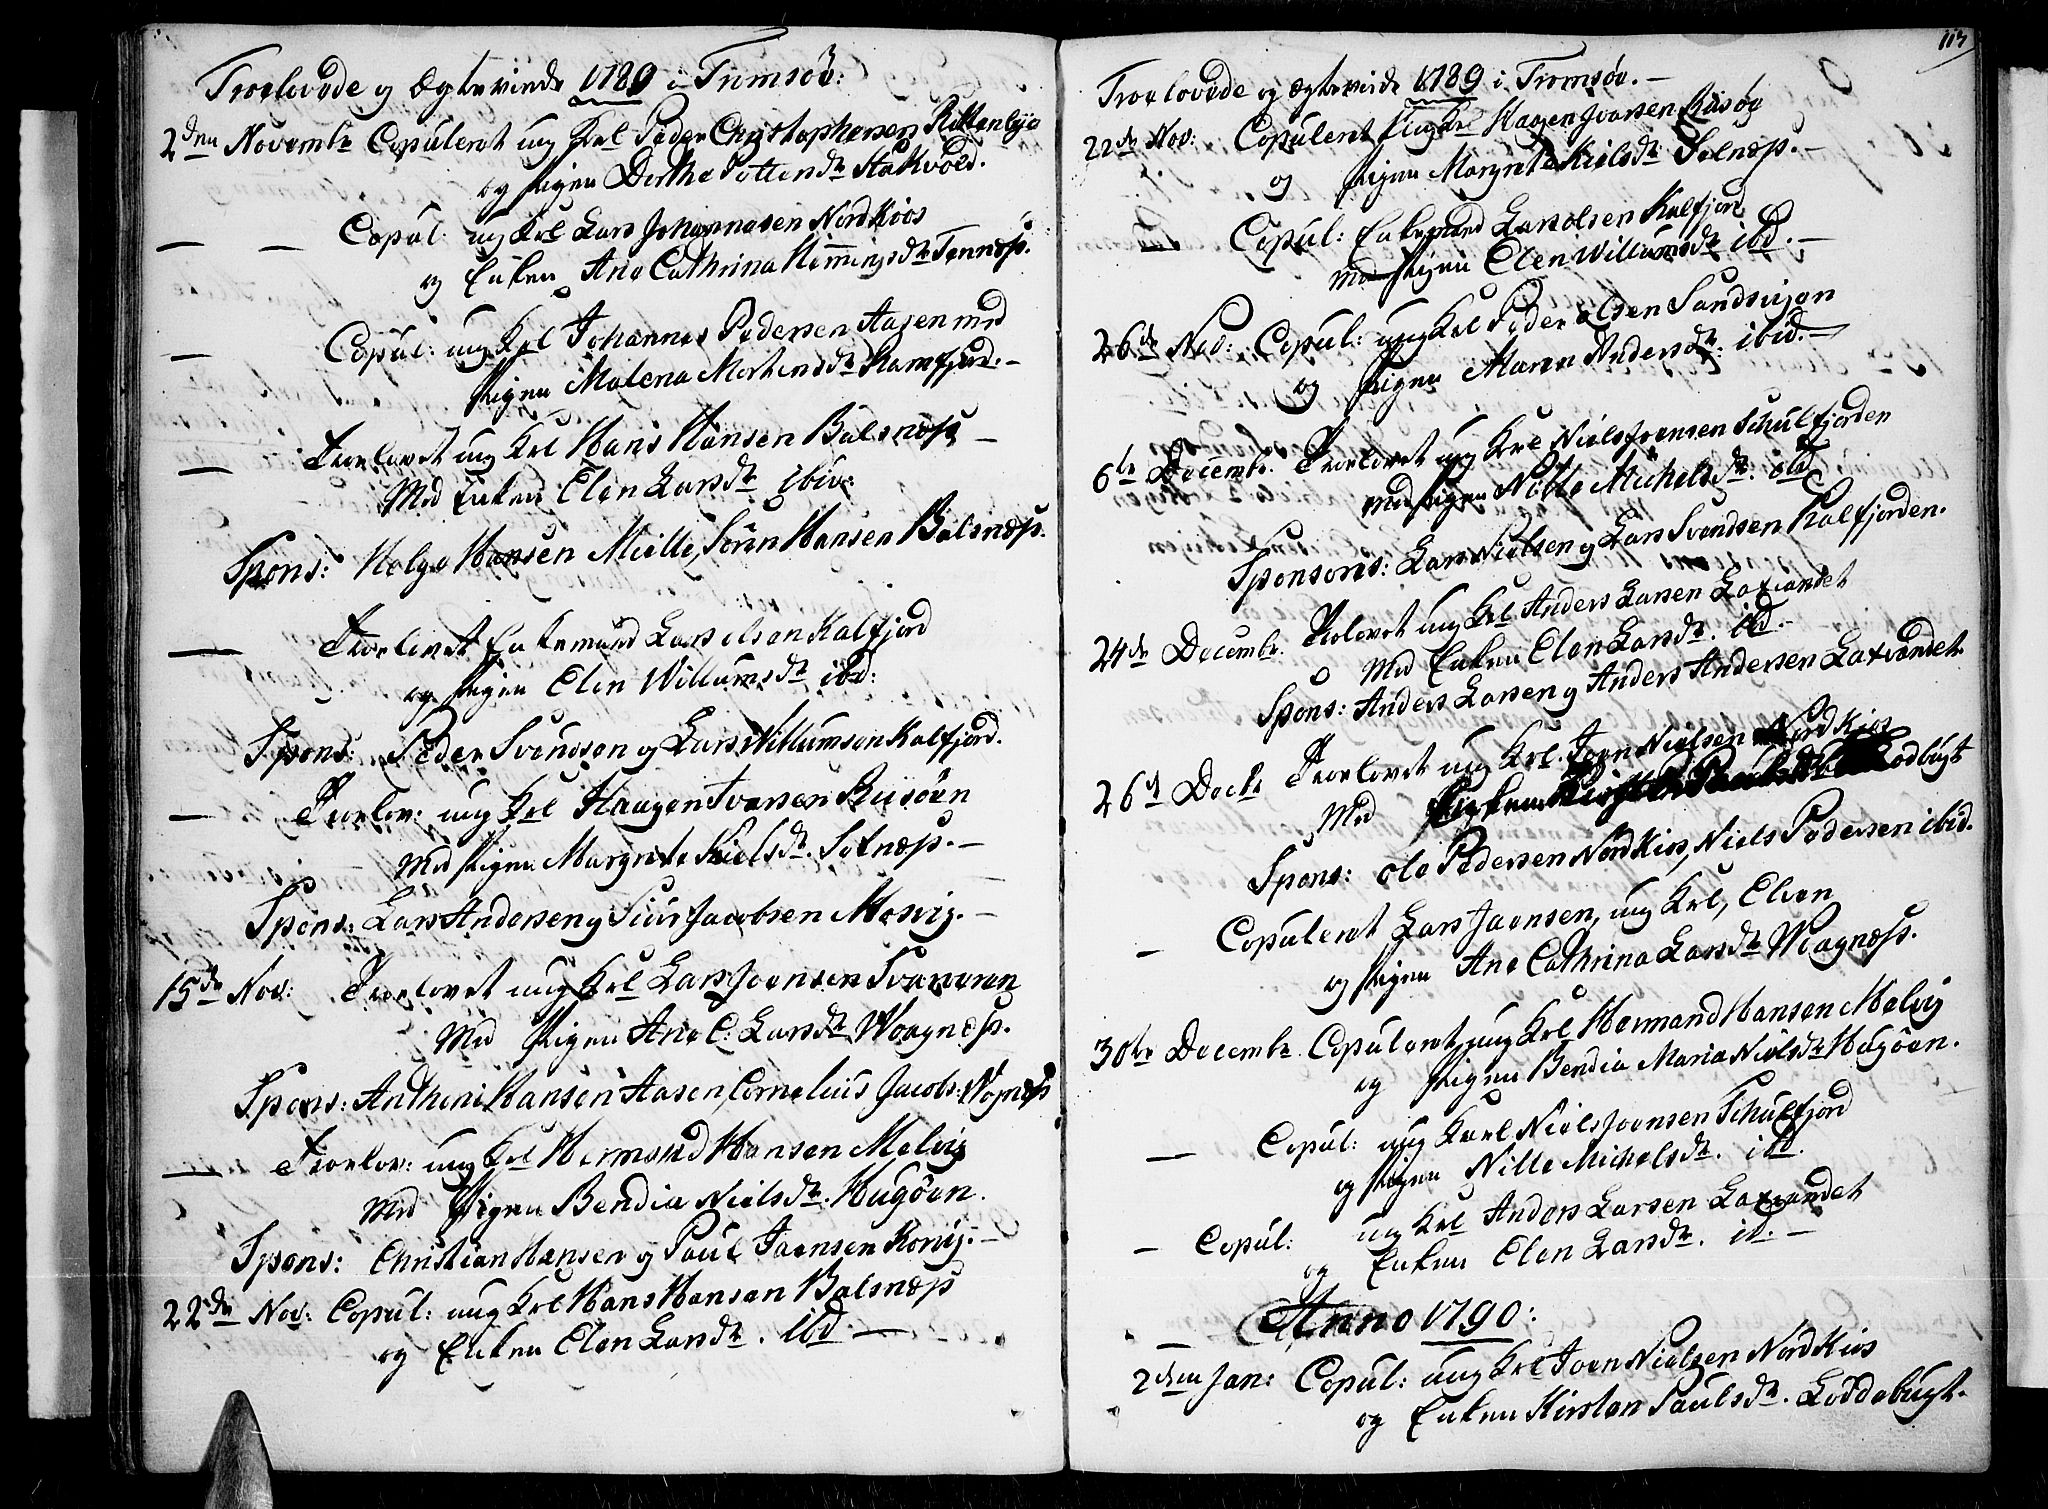 Troelovede og Ægteviede 1789 i Tromsöe:
2den Novembr Copuleret ung Krl Peder Christophersen Rottenbye
og Pigen Dorthe Pettersdr Stakvold.
— — Copul: ung Krl Lars Johannesen Nordkios
og Enken Ane Cathrina Hemmingsdr Tennæss.
— Copul: ung Krl Johannes Pedersen Aasen med
Pigen Malena Mortensdr Ramfjord. —
— Troelovet ung Krl Hans Hansen Balsnæss —
Med Enken Elen Larsdr ibid:
Spons: Helge Hansen Mielle, Sören Hansen Balsnæss.
— Troelovet Enkemand Lars olsen Kalfjord
og Pigen Elen Willumsdr ibd:
Spons: Peder Svendsen og Lars Willumsen Kalfjord.
— Troelov: ung Krl Haagen Ivarsen Riisöen
Med Pigen Margrete Nielsdr. Selnæss. —
Spons: Lars Andersen og Siur Jacobsen Mosvig. —
15de Nov: Troelovet ung Krl Lars Joensen
Med Pigen Ane C: Larsdr Waagnæss.
Spons: Anthoni Hansen Aasen, Cornelius Jacobs: Wognæss
— Troelov: ung Krl Hermand Hansen Melvig
Med Pigen Bendia Nielsdr. Hugöen.
Spons: Christian Hansen og Paul Joensen Korvig. —
22de Nov: Copul: ung Krl Hans Hansen Balsnæss
og Enken Elen Larsdr. ibd. —
113
Troelovede og Ægteviede 1789 i Tromsöe. —
22de Nov: Copuleret ung Krl Haagen Ivarsen Riisöe
og Pigen Margrete Nielsdr Selnæss. —
— Copul: Enkemand Lars olsen Kalfjord
med Pigen Elen Willumsdr ibd. —
26de Nov: Copul: ung Krl Peder olsen Sandvigen
og Pigen Maren Andersdr: ibid. —
6te Decembr. Troelovet ung Krl Niels Joensen Schulfjorden
med Pigen Nille Michelsdr. ibd
Sponsores: Lars Nielsen og Lars Svendsen Kalfjorden.
24de Decembr. Trolovet ung Krl Anders Larsen Laxvandet
Med Enken Elen Larsdr. ibd. —
Spons: Anders Larsen og Anders Andersen Laxvandet
26d Decbr Troelovet ung Krl. Joen Nielsen Nordkios
Med
Spons: Ole Pedersen Nordkios, Niels Pedersen ibid.
— Copuleret Lars Joensen, ung Krl, Elven
og Pigen Ane Cathrina Larsdr Waagnæss.
30te Decembr. Copuleret ung Krl Hermand Hansen Melvig
og Pigen Bendia Maria Nielsdr Hugöen.
— Copul: ung Karl Niels Joensen Schulfjord
og Pigen Nille Michelsdr. ibd.
— Copul: ung Krl Anders Larsen Laxvandet
og Enken Elen Larsdr. id. —
Anno 1790:
2den Jan: Copul: ung Krl Joen Nielsen Nordkios
og Enken Kirsten Paulsdr. Loddebugt.